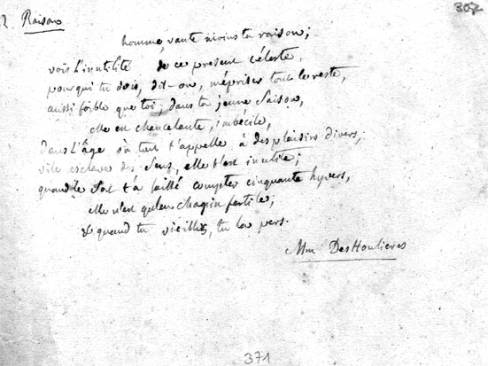 R. Raison
307
homme, vante moins ta raison;
vois l'inutilité de ce present céleste,
pour qui tu dois, dit-on, mépriser tout le reste,
aussi foible que toi, dans ta jeune Saison,
elle est chancelante, imbécile,
Dans l'Âge où tout t'appelle à des plaisirs divers,
vile esclave des Sens, elle t'est inutile;
quand le Sort t'a laissé compter cinquante hyvers,
elle n'est qu'en chagrin fertile;
& quand tu vieillis, tu la pers.
Mm DesHoulieres
371